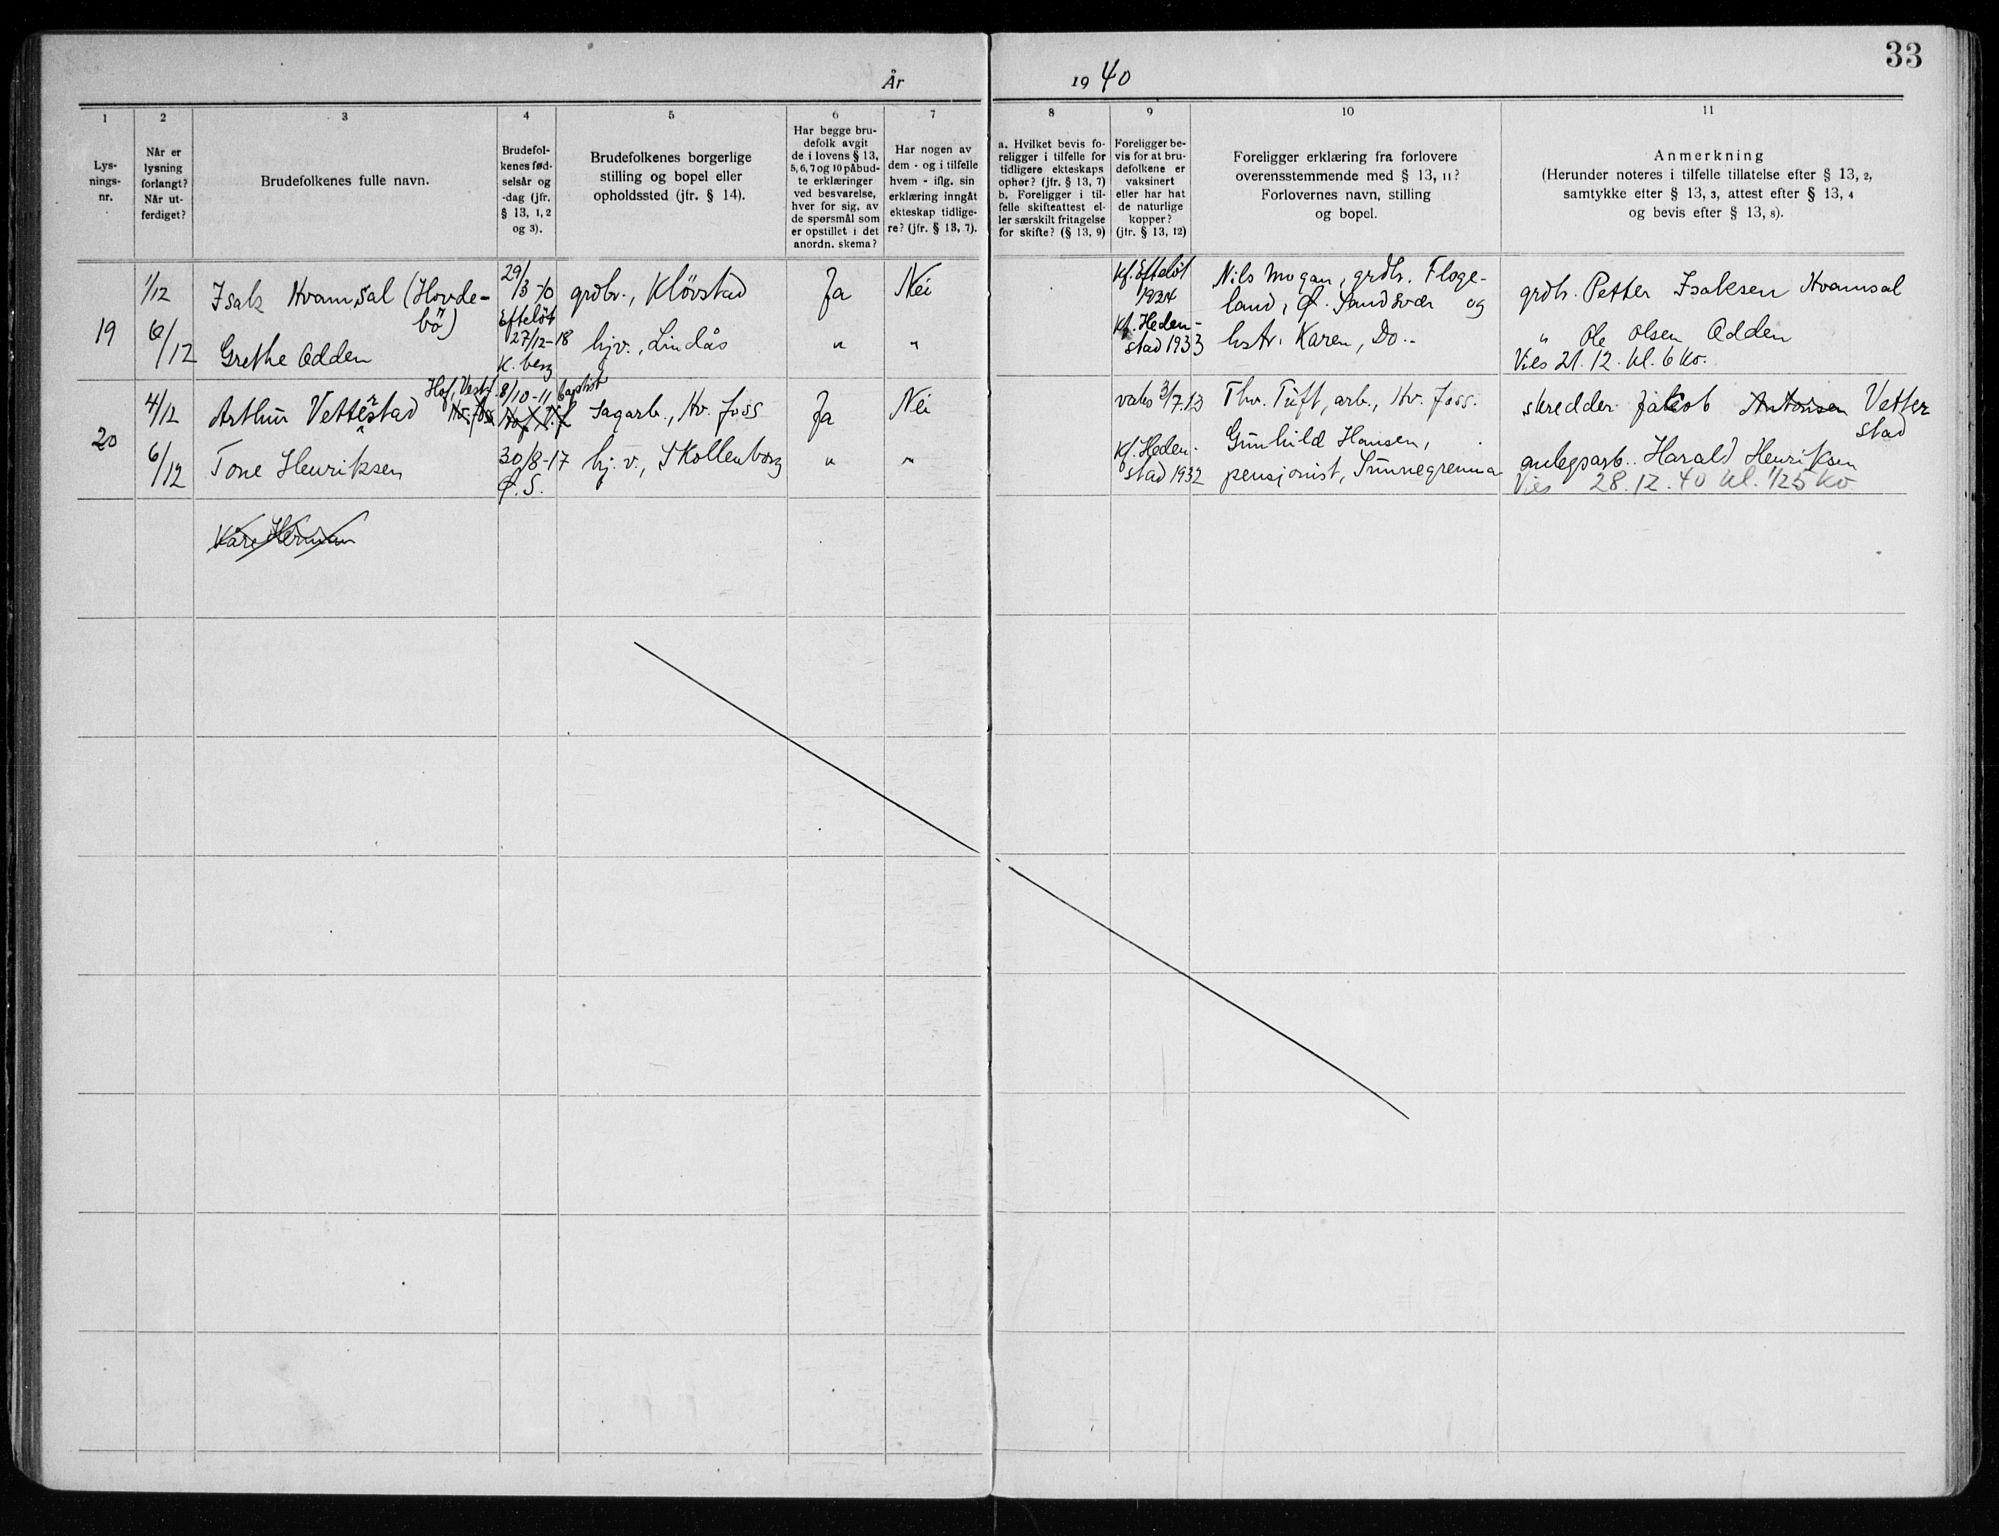 33
År 1940
1
Lys-
nings-
nr.
2
Når er
lysning
forlangt?
Når ut-
ferdiget?
3
Brudefolkenes fulle navn.
4
Brudefol-
kenes fød-
selsår og
-dag (jfr.
§ 13, 1, 2
og 3).
5
Brudefolkenes borgerlige
stilling og bopel eller
opholdssted (jfr. § 14).
6
Har begge bru-
defolk avgit
de i lovens § 13,
5, 6, 7 og 10 påbud-
te erklæringer
ved besvarelse,
hver for sig, av
de spørsmål som
er opstillet i det
anordn. skema?
7
Har nogen av
dem - og i tilfelle
hvem - iflg. sin
erklæring inngått
ekteskap tidlige-
re? (jfr. § 13, 7).
8
a. Hvilket bevis fo-
religger i tilfelle for
tidligere ekteskaps
ophør? (jfr. § 13, 7)
b. Foreligger i til-
felle skifteattest el-
ler særskilt fritagelse
for skifte? (§ 13, 9)
9
Foreligger be-
vis for at bru-
defolkene er
vaksinert
eller har hat
de naturlige
kopper?
(jfr. § 13, 12)
10
Foreligger erklæring fra forlovere
overensstemmende med § 13, 11?
Forlovernes navn, stilling
og bopel.
11
Anmerkning
(Herunder noteres i tilfelle tillatelse efter § 13, 2,
samtykke efter § 13, 3, attest efter § 13, 4
og bevis efter § 13, 8).
19
1/12
6/12
Isak Kvamsal (Hovde-
bö)
Grethe Odden
29/3
Efteløt
27/12-18
K.berg
grdbr., Klövstad
hjv., Lindås
Ja
"
Nei
"
Kf. Efteløt
1924
Kf. Heden-
stad 1933
Nils Mogan, grdbr. Floge-
land, Ø. Sandsvær og
hstr. Karen, Do..
grdbr. Petter Isaksen Kvamsal
" Ole Olsen Odden
Vies 21.12. kl. 6 Ko.
20
4/12
6/12
Arthur Vetterstad
Tone Henriksen
Hof, Vestf.
8/10-11
baptist
30/8-17
Ø.S.
Sagarb., Hv. foss
hj.v., Skollenborg
Ja
"
Nei
"
vaks 3/7.13
Kf. Heden-
stad 1932
Thv. Tuft, arb., Hv. foss.
Gunhild Hansen,
pensjonist, Sunnegrenna
skredder Jakob Antonsen Vetter
stad
anlegsarb.. Harald Henriksen
Vies 28.12.40 kl. 1/2 5 Ko
Kåre Herman